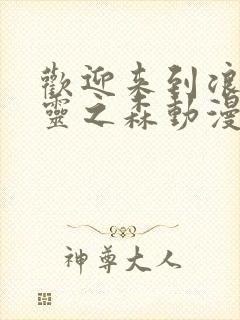 歡迎来到浪
靈之森動漫
神尊大人